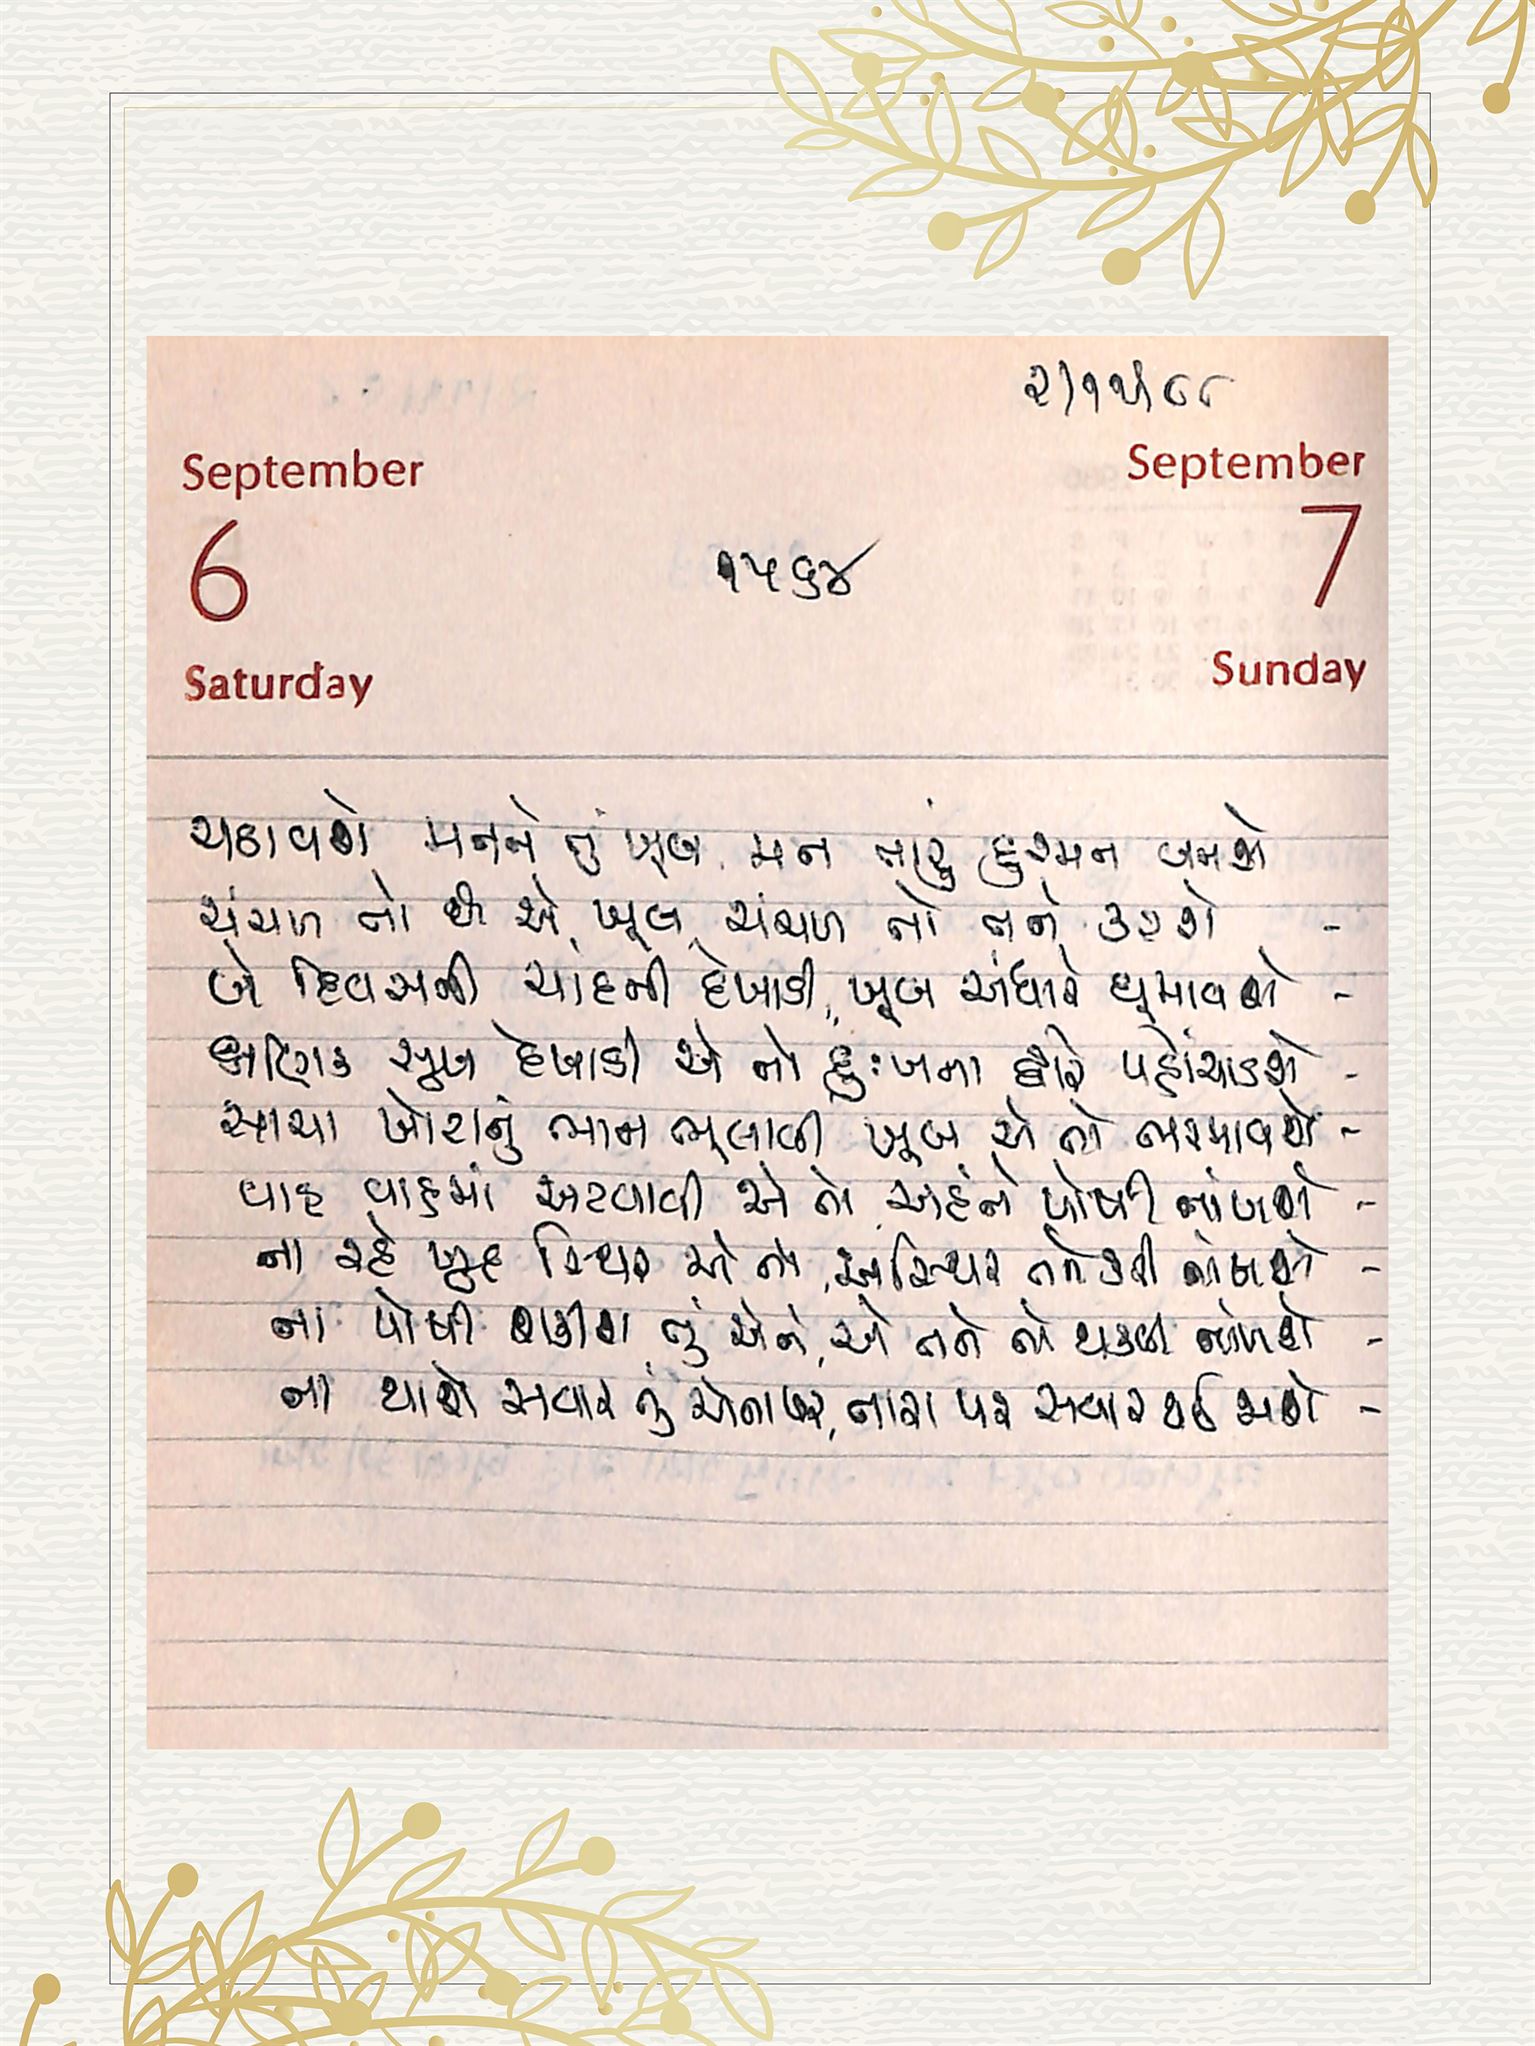 ૨/૧૧/૮૮
September
September
6
7
૧૫૬૪
Saturday
Sunday
ચઢાવશે મનને તું ખૂબ, મન તારું દુશ્મન બનશે
ચંચળ તો છે એ, ખૂબ ચંચળ તો તને કરશે -
બે દિવસની ચાંદની દેખાડી, ખૂબ અંધારે ઘુમાવશે -
ક્ષણિક સુખ દેખાડી એ તો દુઃખના દ્વારે પહોંચાડશે -
સાચા ખોટાનું ભાન ભૂલાવી ખૂબ એ તો ભરમાવશે -
વાહ વાહમાં અટવાવી એ તો અહંને પોષી નાંખશે -
ના રહે ખુદ સ્થિર એ તો, અસ્થિર તને કરી નાંખશે -
ના પોષી શકીશ તું એને, એ તને તો થકવી નાંખશે -
ના થાશે સવાર તું એના પર, તારા પર સવાર થઈ જાશે -